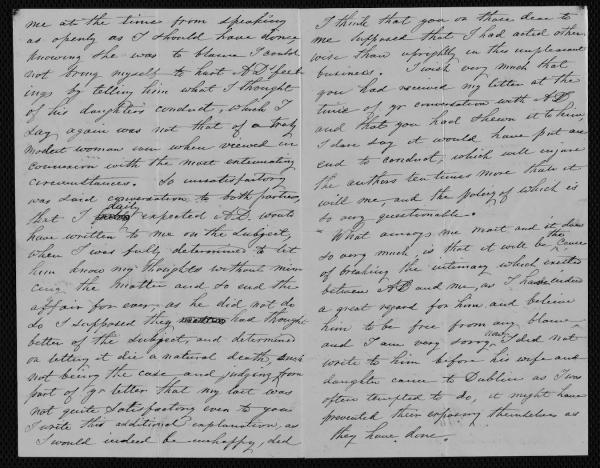 me at the time from speaking
as openly as I should have done
knowing she was to blame I could
not bring myself to hurt AD's feel
ings by telling him what I thought
of his daughters conduct, which I
say again was not that of a truly
modest woman even when viewed in
connexion with the most extenuating
circumstances. So unsatisfactory
was said conversation to both parties,
that I daily expected A.D. would
have written to me on the subject,
when I was fully determined to let
him know my thoughts without min
cing the matter and so end the
affair for ever, as he did not do
so I supposed they had thought
better of the subject, and determined
on letting it die a natural death, such
not being the case and judging from
part of yr letter that my last was
not quite satisfactory even to you
I write this additional explanation, as
I would indeed be unhappy, did
I think that you or those dear to
me supposed that I had acted other
wise than uprightly in this unpleasant
business. I wish very much that
you had received my letter at the
time of yr conversation with AD,
and that you had shewn it to him,
I dare say it would have put an
end to conduct, which will injure
the authors ten times more than it
will me, and the policy of which is
so very questionable.
What annoys me most and it does
so very much is that it will be the cause
of breaking the intimacy which existed
between AD and me, as I have
a great regard for him and believe
him to be free from any blame
and I am very sorry now I did not
write to him before his wife and
daughter came to Dublin as I was
often tempted to do, it might have
prevented their exposing themselves as
they have done.